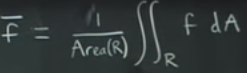 f̅ = 1/Area(R) ∬_R f dA